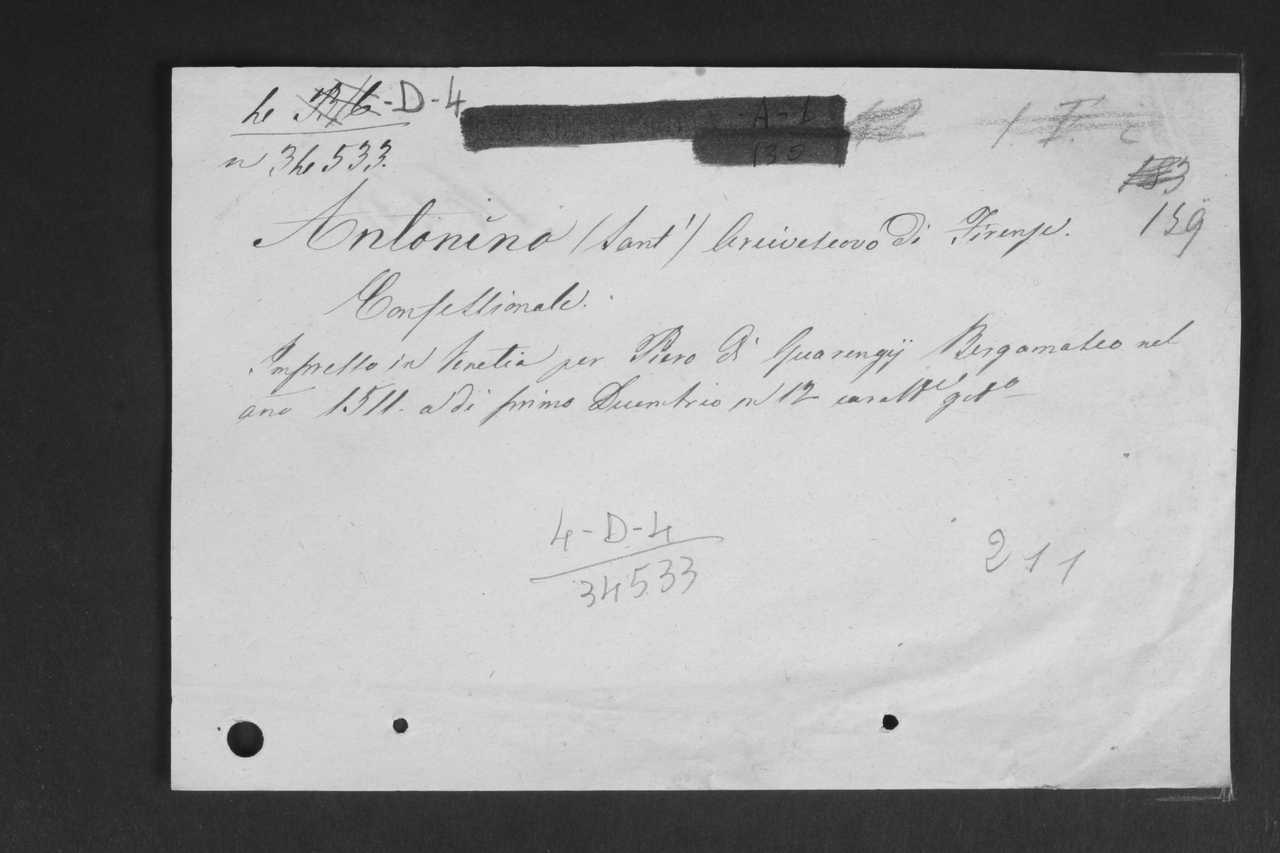 4 -D-4
n 34533.
159
Antonino (Sant') Arcivescovo di Firenze.
Confessionale.
Impresso in Venetia per Piero di Quarengij Bergamasco nel
ano 1511. adi primo Decembrio in 12 caratt.
4-D-4
34533
211